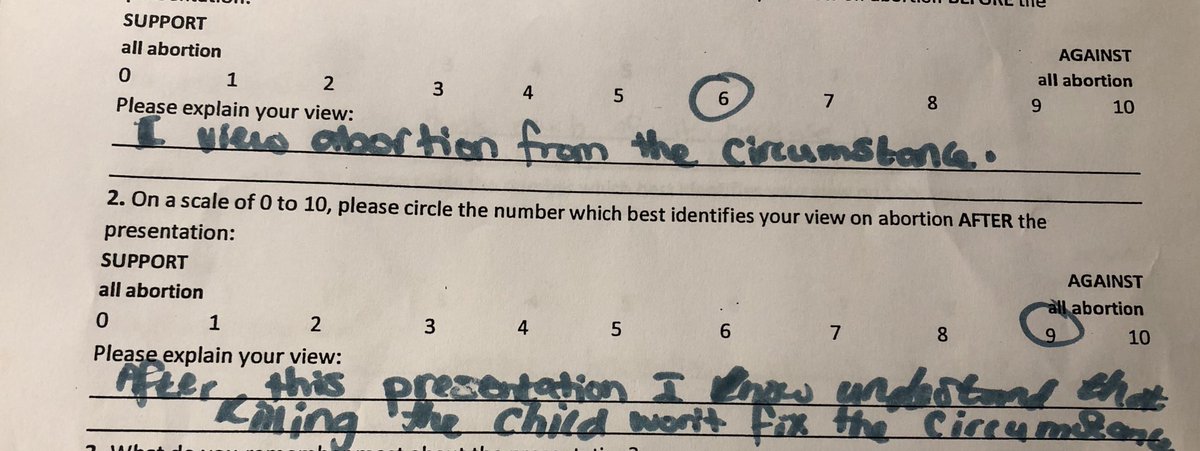 SUPPORT
all abortion
AGAINST
all abortion
0 1 2 3 4 5 6 7 8 9 10
Please explain your view:
I view abortion from the circumstance.
2. On a scale of 0 to 10, please circle the number which best identifies your view on abortion AFTER the
presentation:
SUPPORT
all abortion
AGAINST
all abortion
0 1 2 3 4 5 6 7 8 9 10
Please explain your view:
After this presentation I know understand that
killing the child won't fix the circumstance